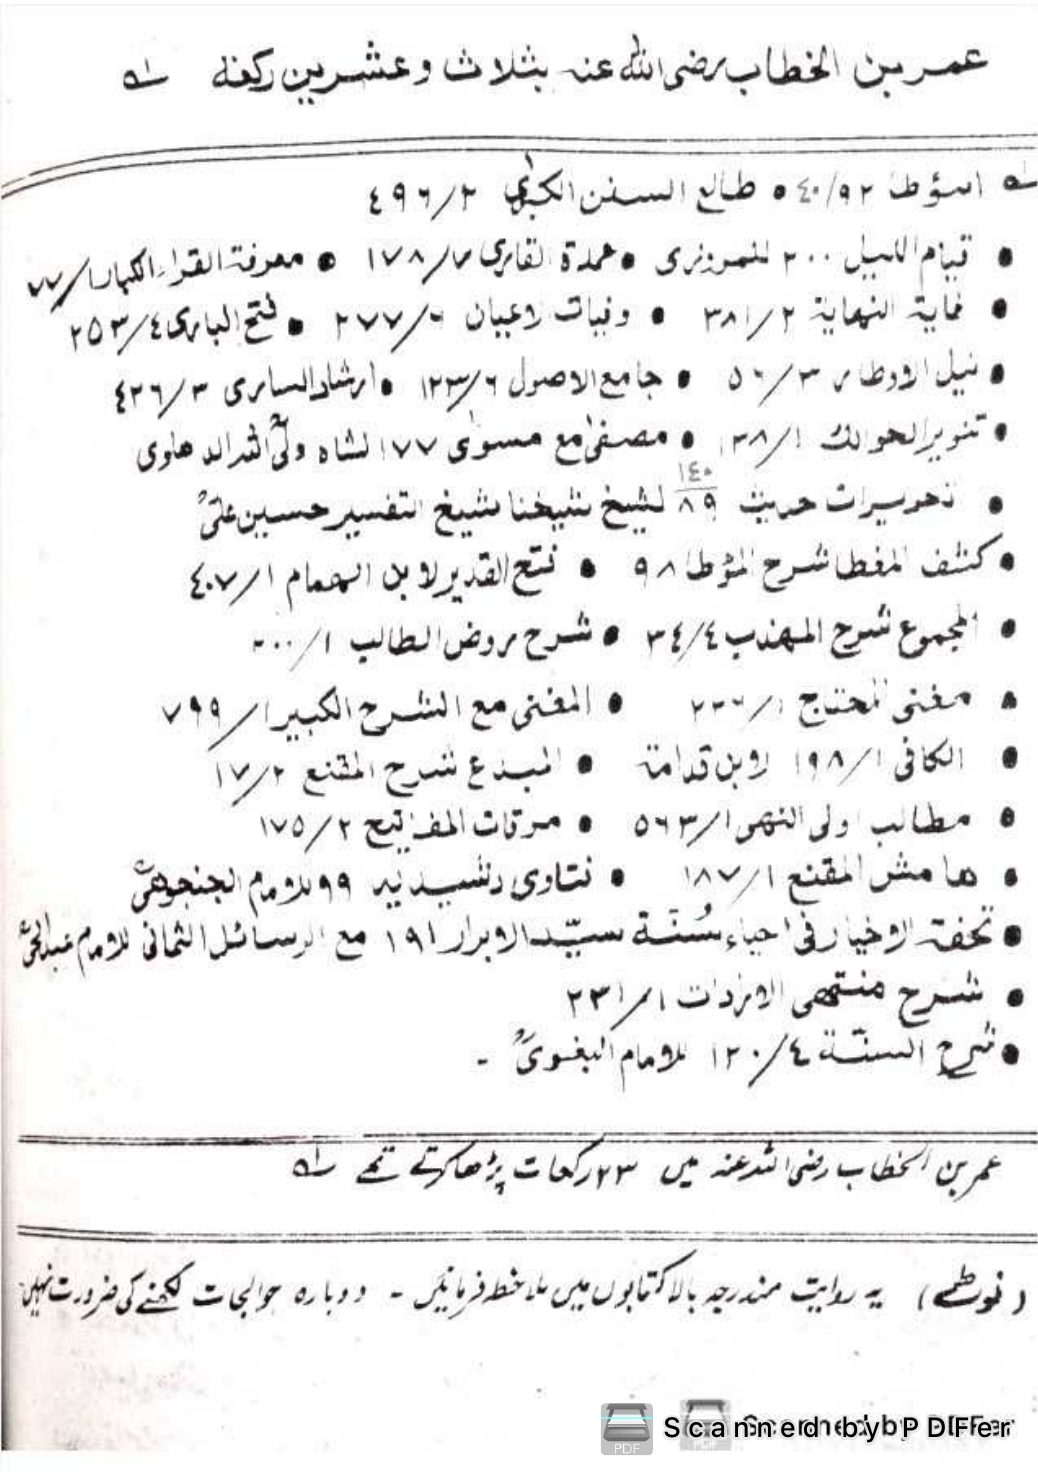 عمر بن الخطاب رضی اللہ عنہ بثلاث وعشرین رکعة لہ
لہ المؤطا ٤٠/٩٢ • طالع السنن الکبرٰی ٤٩٦/٢
• قیام اللیل ٢٠٠ للمروزی • عمدة القاری ١٧٨/٧ • معرفة القراء الکبار ٧٧/١
• غایة النهایة ٣٨١/٢ • وفیات لاعیان ٢٧٧/٦ • فتح الباری ٢٥٣/٤
• نیل الاوطار ٥٦/٣ • جامع الاصول ١٢٣/٦ • ارشاد الساری ٤٢٦/٣
• تنویر الحوالك ١٣٨/١ • مصفٰی مع مسوٰی ١٧٧ لشاہ ولی اللہ الدهلوی
• تحریرات حدیث ١٤٠ ٨٩ لشیخ شیخنا شیخ التفسیر حسین علی
• کشف المغطا شرح المؤطا ٩٨ • فتح القدیر لابن الهمام ٤٠٧/١
• المجموع شرح المهذب ٣٤/٤ • شرح روض الطالب ٢٠٠/١
• مغنی المحتاج ٢٢٦/١ • المغنی مع الشرح الکبیر ٧٩٩/١
• الکافی ١٩٨/١ لابن قدامة • المبدع شرح المقنع ١٧/٢
• مطالب اولی النهی ٥٦٣/١ • مرقات المفاتیح ١٧٥/٢
• هامش المقنع ١٨٧/١ • فتاوی رشیدیہ ٩٩ للامام الجنجوهی
• تحفة الاخیار فی احیاء سُنّة سیّد الابرار ١٩١ مع الرسائل الثمانی للامام عبدالحی
• شرح منتهی الارادات ٢٣١/١
• شرح السنّة ١٢٠/٤ للامام البغوی -
عمر بن الخطاب رضی اللہ عنہ میں ٢٣ رکعات پڑھا کرتے تھے لہ
(نوٹ) یہ روایت مندرجہ بالا کتابوں میں ملاحظہ فرمائیں - دوبارہ حوالجات لکھنے کی ضرورت نہیں
Scanned by PDFer
Scanned by PDFer